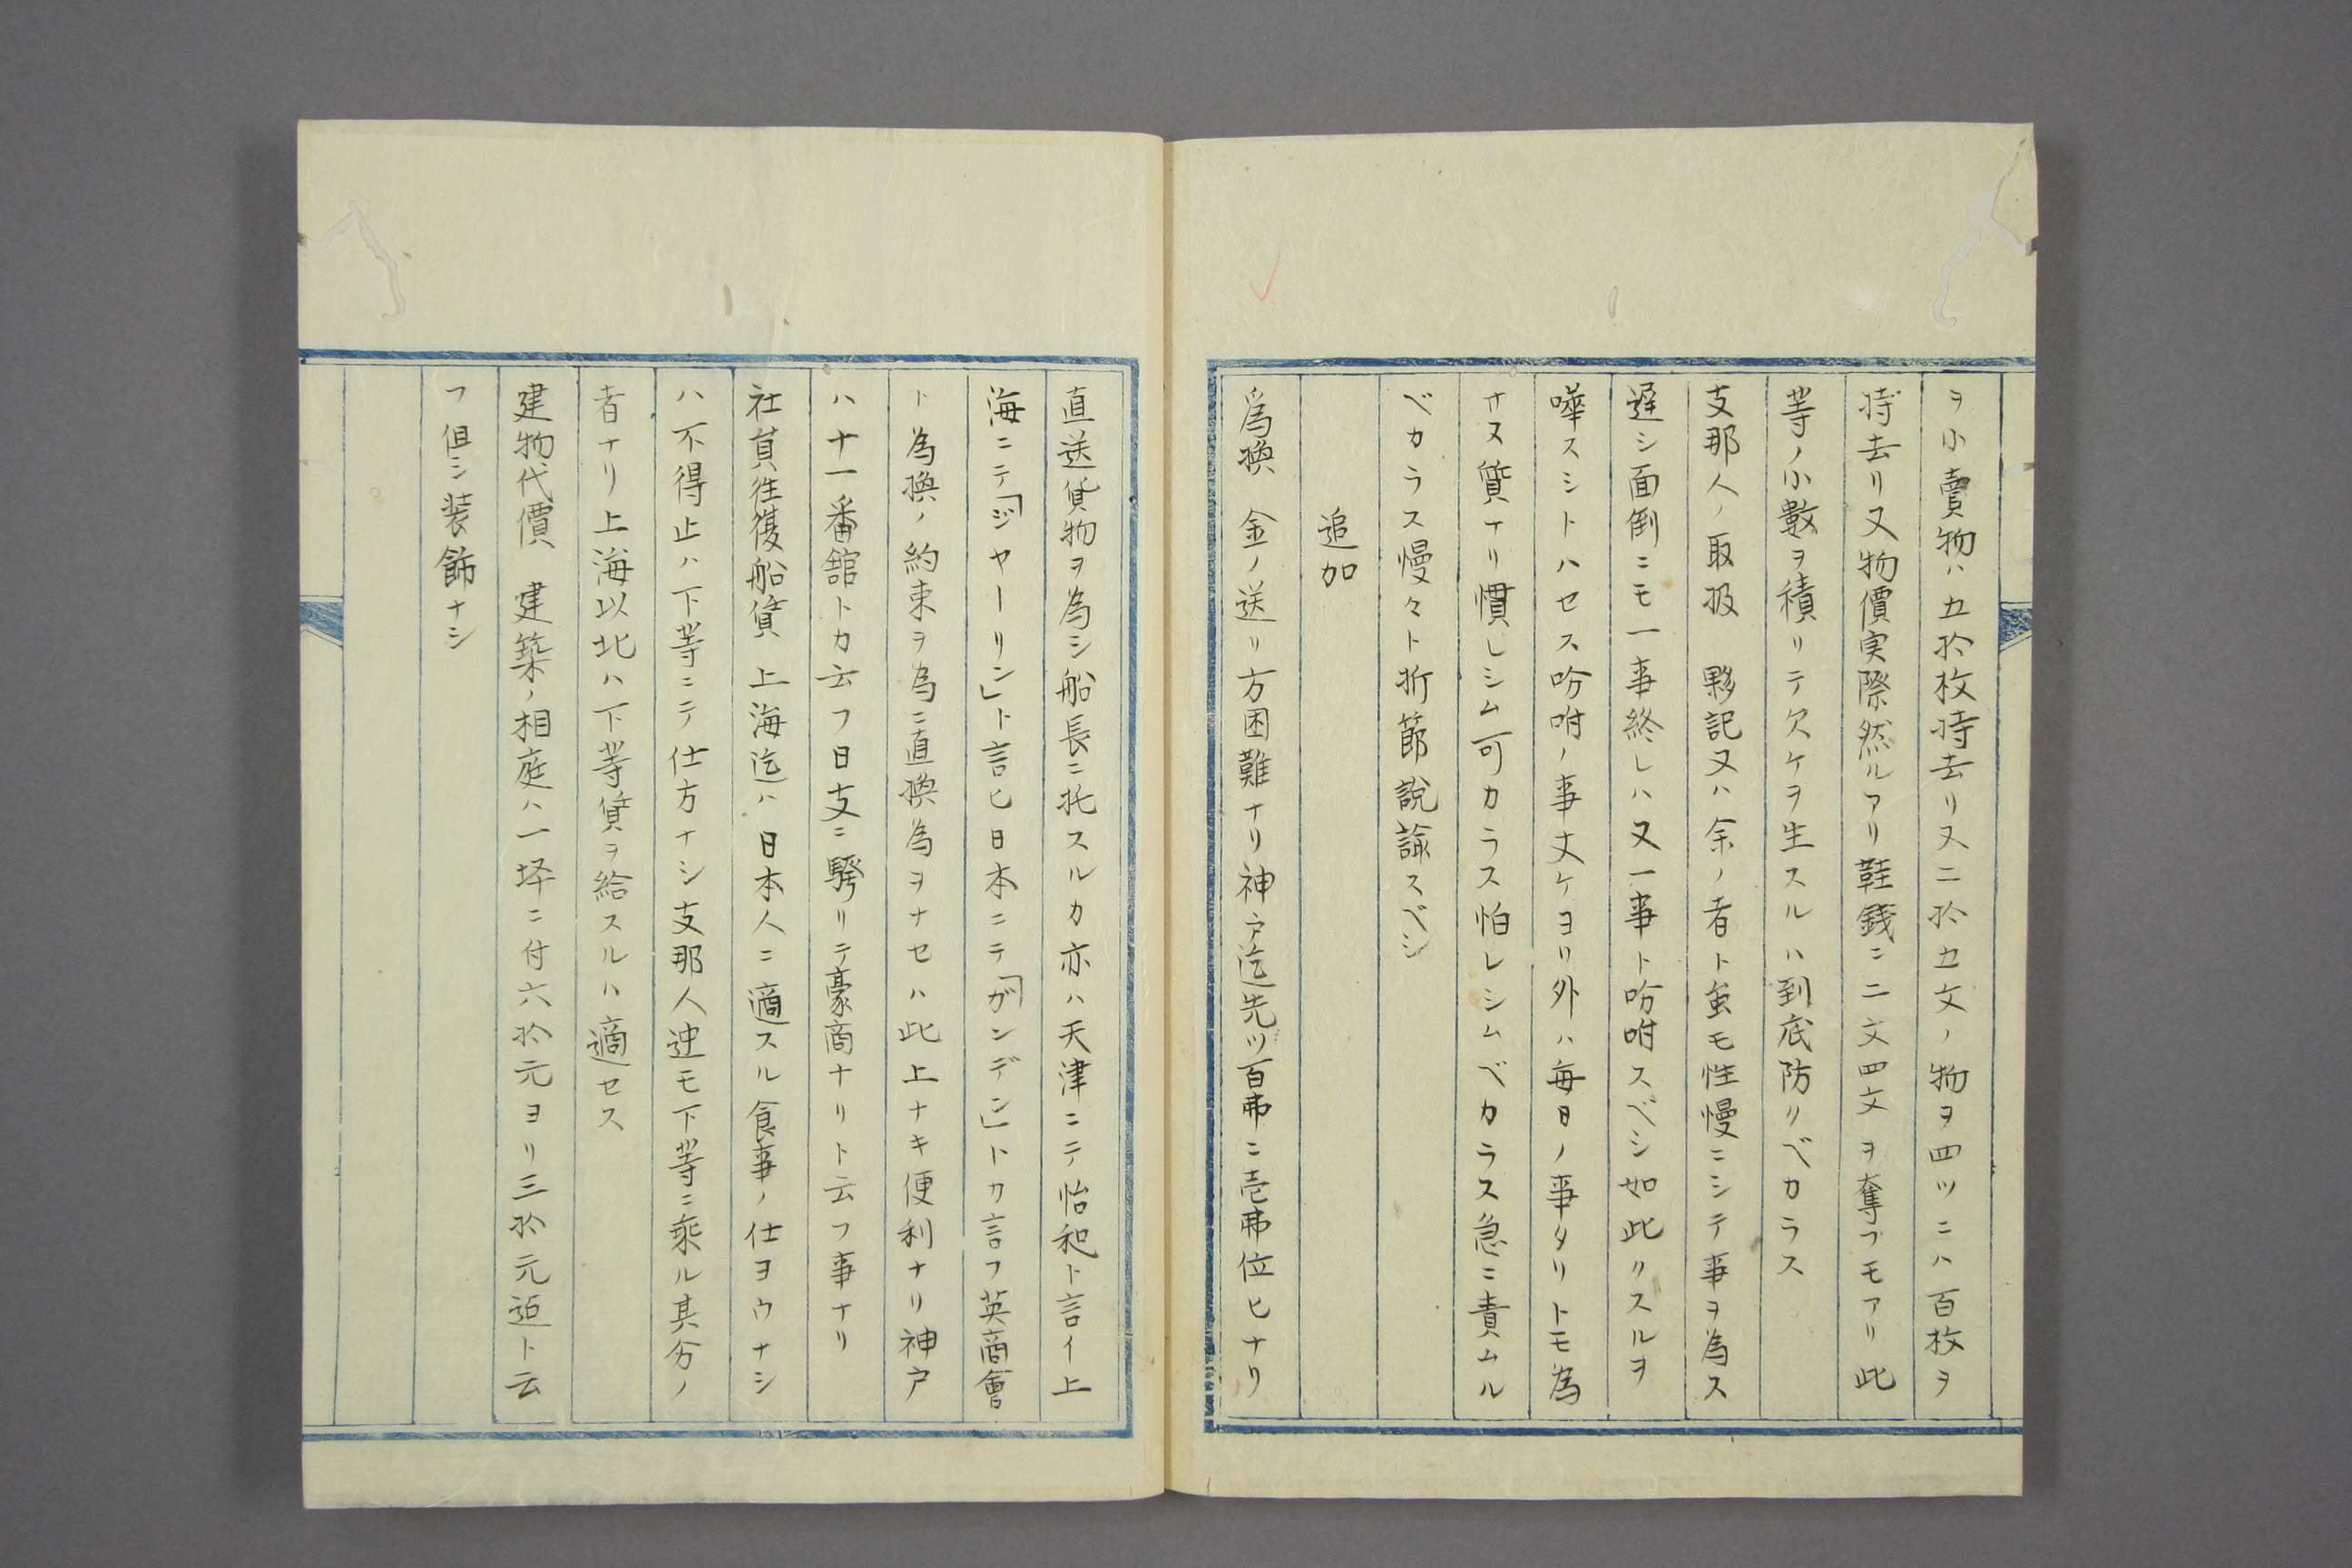 ヲ小賣物ハ五拾枚持去リ又二拾五文ノ物ヲ四ツニハ百枚ヲ
持去リ又物價実際然ルアリ鞋銭ニ二文四文ヲ奪フモアリ此
等ノ小數ヲ積リテ欠ケヲ生スルハ到底防リベカラス
支那人ノ取扱　夥記又ハ余ノ者ト虽モ性慢ニシテ事ヲ為ス
遅シ面倒ニモ一事終レハ又一事ト吩咐スベシ如此クスルヲ
嘩スシトハセス吩咐ノ事丈ケヨリ外ハ毎日ノ事タリトモ為
サヌ質ナリ慣レシム可カラス怕レシムベカラス急ニ責ムル
ベカラス慢々ト折節説諭スベシ
追加
為換　金ノ送リ方困難ナリ神戸迄先ツ百弗ニ壱弗位ヒナリ
直送貨物ヲ為シ船長ニ托スルカ亦ハ天津ニテ怡和ト言イ上
海ニテ「ジヤーリン」ト言ヒ日本ニテ「ガンデン」トカ言フ英商會
ト為換ノ約束ヲ為ニ直換為ヲナセハ此上ナキ便利ナリ神戸
ハ十一番舘トカ云フ日支ニ跨リテ豪商ナリト云フ事ナリ
社員往復船賃　上海迄ハ日本人ニ適スル食事ノ仕ヨウナシ
ハ不得止ハ下等ニテ仕方ナシ支那人迚モ下等ニ乗ル其分ノ
者ナリ上海以北ハ下等賃ヲ給スルハ適セス
建物代價　建築ノ相庭ハ一坪ニ付六拾元ヨリ三拾元迠ト云
フ但シ装飾ナシ